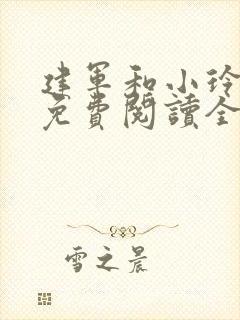 建军和小玲
免費閱讀全
雪之晨